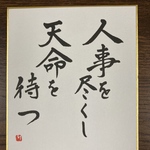 人事を
尽くし
天命を
待つ